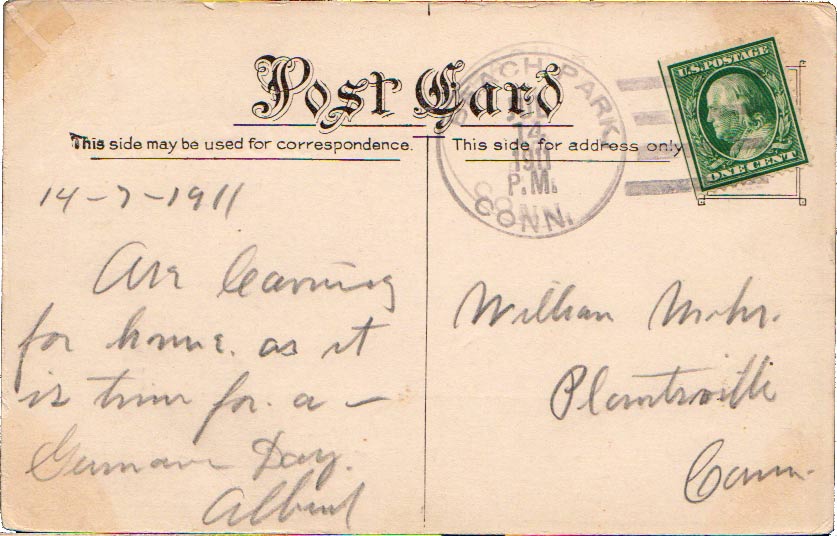 Post Card
This side may be used for correspondence.
This side for address only
BEACH PARK
14
1911
P.M.
CONN.
U.S. POSTAGE
ONE CENT
14-7-1911
Are leaving
for home. as it
is time for a –
German Day.
Albert
William Mohr.
Plantsville
Conn.